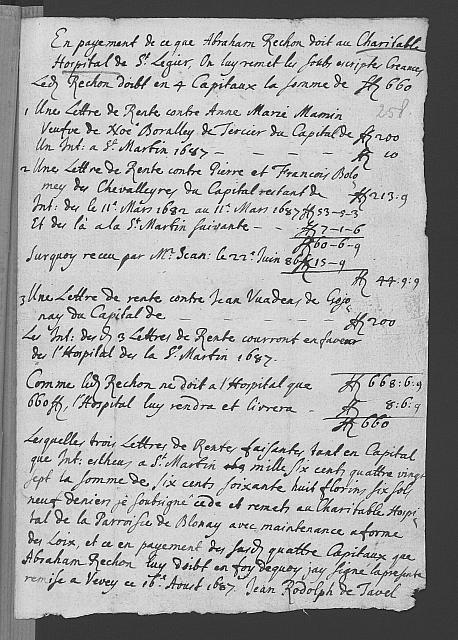 En payement de ce que Abraham Rechon doit au Charitable
Hospital de St. Legier, On luy remet les soubs escripte Creances
Led. Rechon doibt en 4 Capitaux la somme de ff 660
258
1 Une Lettre de Rente contre Anne Marie Mamin
Veufve de Noé Boralley de Tercier du Capital de ff 200
Un Int: a St. Martin 1687 - - - - ff 10
2 Une Lettre de Rente contre Pierre et Francois Bolo
mey des Chevalleyres du Capital restant de ff 213:9
Int: des le 11e. Mars 1682 au 11e. Mars 1687 ff 53-5-3
Et des là a la St. Martin suivante - - ff 7-1-6
ff 60-6-9
Surquoy receu par Mr. Jean: le 22e. Juin 86 ff 15-9
ff 44:9:9
3 Une Lettre de rente contre Jean Vuadens de
nay du Capital de - - - - ff 200
Les Int: des d. 3 Lettres de Rente courront en faveur
de l'Hospital des la St. Martin 1687.
Comme led. Rechon ne doit a l'Hospital que ff 668:6:9
660 ff, l'Hospital luy rendra et livrera - ff 8:6:9
ff 660
Lesquelles trois Lettres de Rentes faisantes tant en Capital
que Int: escheus a St. Martin mille six cents quattre vingt
sept la somme de, six cents soixante huit florins, six sols
neuf deniers je soubsigné cede et remets au Charitable Hospi-
tal de la Parroisce de Blonay avec maintenance a forme
des Loix, et ce en payement des susd. quattre Capitaux que
Abraham Rechon luy doibt en foy dequoy jay signé la presente
remise a Vevey ce 16e. Aoust 1687. Jean Rodolph de Tavel